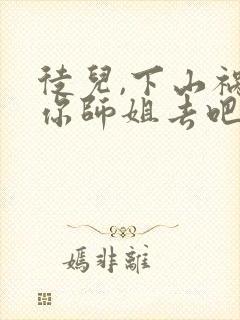 徒兒,下山禍
你師姐去吧
嫣非離